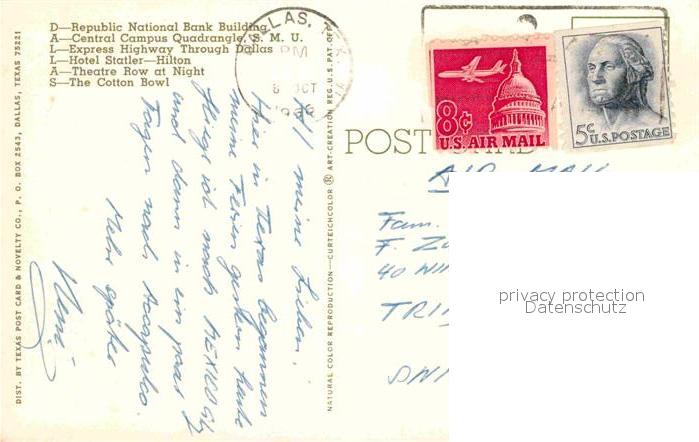 D—Republic National Bank Building
A—Central Campus Quadrangle, S. M. U.
L—Express Highway Through Dallas
L—Hotel Statler—Hilton
A—Theatre Row at Night
S—The Cotton Bowl
DALLAS, TEX
PM
OCT
8¢
U.S. AIR MAIL
5¢ U.S. POSTAGE
POST CARD
AIR MAIL
DIST. BY TEXAS POST CARD & NOVELTY CO., P. O. BOX 2543, DALLAS, TEXAS 75221
NATURAL COLOR REPRODUCTION—CURTEICHCOLOR ® ART-CREATION REG. U.S. PAT. OFF.
All meine Lieben.
Hier in Texas begannen
meine Ferien gestern heute
fliege ich nach MEXICO City
und dann in ein paar
Tagen nach Acapulco.
Mehr später
Fam.
F. Zu
40 Wi
TRI
privacy protection
Datenschutz